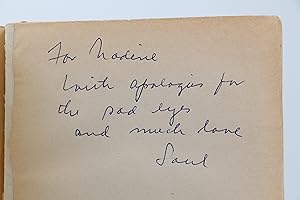 For Nadine
with apologies for
the sad eyes
and much love
Saul